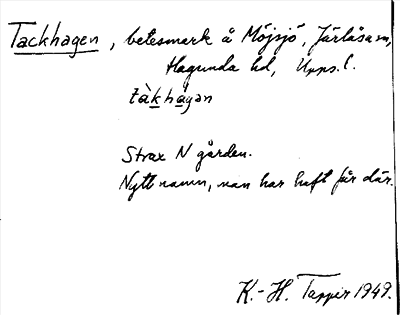 Tackhagen, betesmark å Möjsjö, Järlåsa sn,
Hagunda hd, Upps. l.
tàkhágan
Strax N gården.
Nytt namn, man har haft får där.
K.-H. Tappir 1949.